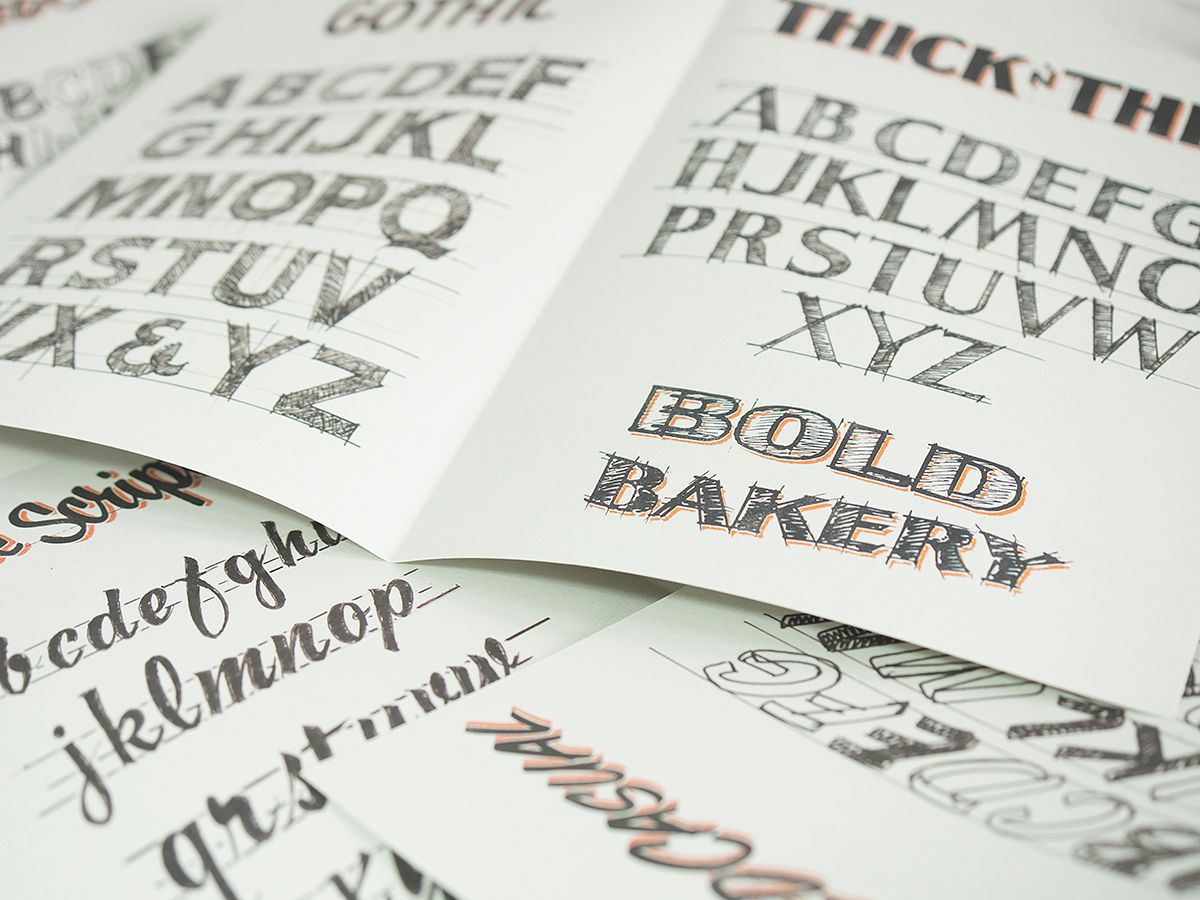 GOTHIC
ABCDEF
GHIJKL
MNOPQ
RSTUV
X&YZ
THICK N THI
ABCDEFG
HJKLMNO
PRSTUVW
XYZ
BOLD
BAKERY
Script
bcdefghi
jklmnop
qrst
CASUAL